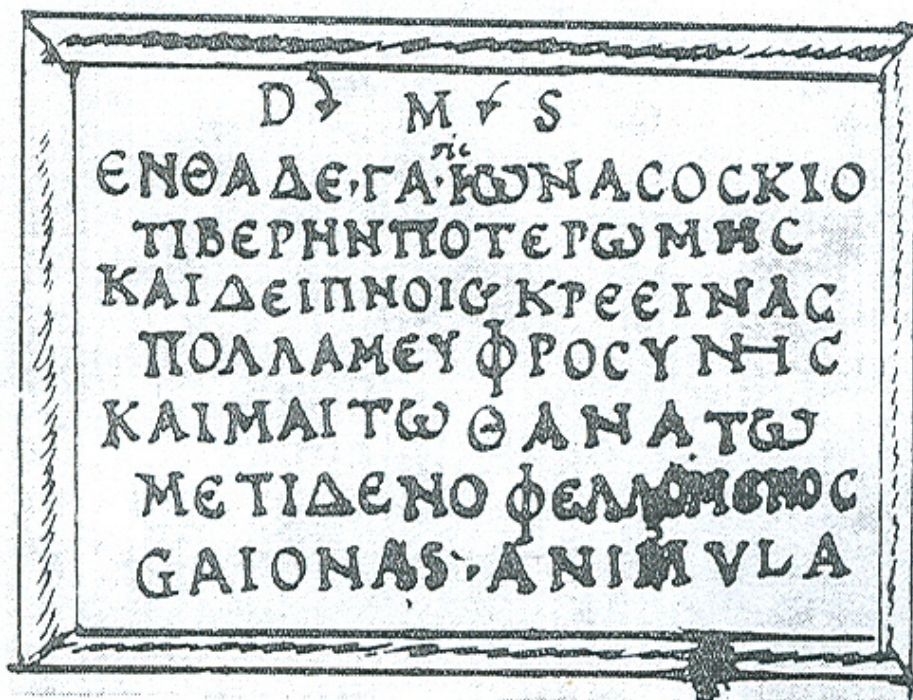 D M S
ΕΝΘΑΔΕ·ΓΑ·ΙΩΝΑϹΟϹΚΙΟ
ΤΙΒΕΡΗΝΠΟΤΕΡΩΜΗϹ
ΚΑΙΔΕΙΠΝΟΙϹ ΚΡΕΕΙΝΑϹ
ΠΟΛΛΑΜΕΥΦΡΟϹΥΝΗϹ
ΚΑΙΜΑΙΤΩ ΘΑΝΑΤΩ
ΜΕΤΙΔΕΝΟΦΕΛΛΟΜΕΝΟϹ
GAIONAS·ANIMVLA